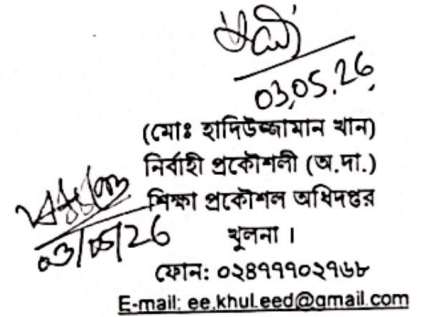 03.05.26
(মোঃ হাদিউজ্জামান খান)
নির্বাহী প্রকৌশলী (অ.দা.)
শিক্ষা প্রকৌশল অধিদপ্তর
03/05/26
খুলনা ।
ফোন: ০২৪৭৭৭০২৭৬৮
E-mail: ee.khul.eed@gmail.com